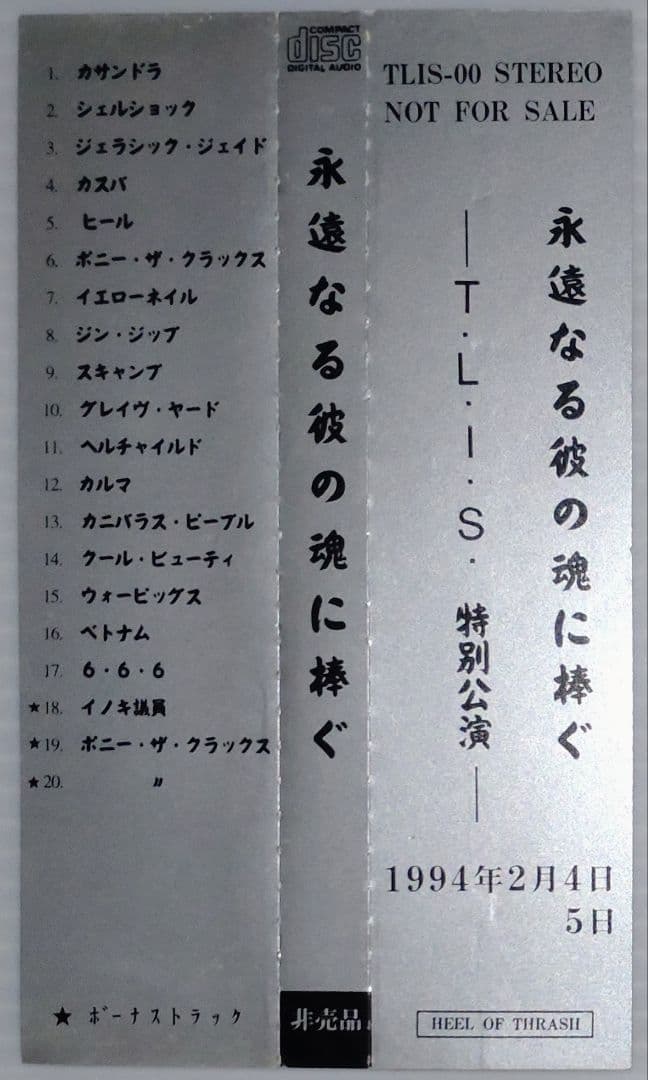 1. カサンドラ
2. シェルショック
3. ジェラシック・ジェイド
4. カスバ
5. ヒール
6. ボニー・ザ・クラックス
7. イエローネイル
8. ジン・ジップ
9. スキャンプ
10. グレイヴ・ヤード
11. ヘルチャイルド
12. カルマ
13. カニバラス・ピープル
14. クール・ビューティ
15. ウォーピッグス
16. ベトナム
17. 6・6・6
★18. イノキ議員
★19. ボニー・ザ・クラックス
★20. 〃
★ ボーナストラック
COMPACT
disc
DIGITAL AUDIO
永遠なる彼の魂に棒ぐ
非売品
TLIS-00 STEREO
NOT FOR SALE
永遠なる彼の魂に棒ぐ
―T・L・I・S・特別公演―
1994年2月4日
5日
HEEL OF THRASH